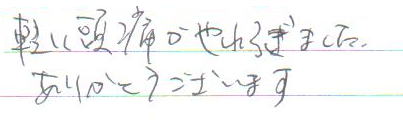 軽い頭痛がやわらぎました.
ありがとうございます